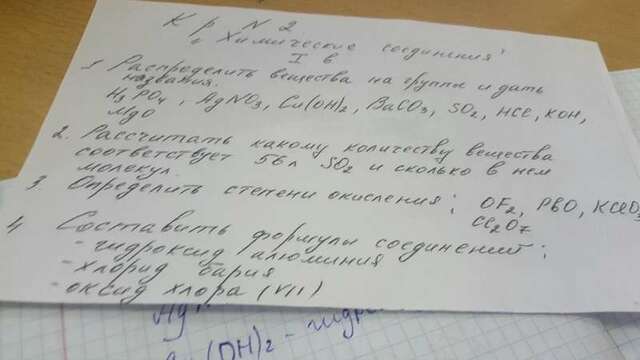 К р N 2
„Химические соединения"
I в
1 Распределить вещества на группы и дать
названия.
H3PO4, AgNO3, Cu(OH)2, BaCO3, SO2, HCl, KOH,
MgO
2. Рассчитать какому количеству вещества
соответствует 56л SO2 и сколько в нем
молекул.
3. Определить степени окисления; OF2, PbO, KClO3
Cl2O7
4 Составить формулы соединений;
- гидроксид алюминия
- хлорид бария
- оксид хлора (VII)
(OH)2 -